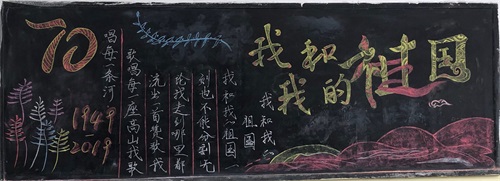 70
1949
—
2019
我和
我的祖国
我和我的
祖国
我和我的祖国一
刻也不能分割无
论我走到哪里都
流出一首赞歌我
歌唱每一座高山我歌
唱每一条河